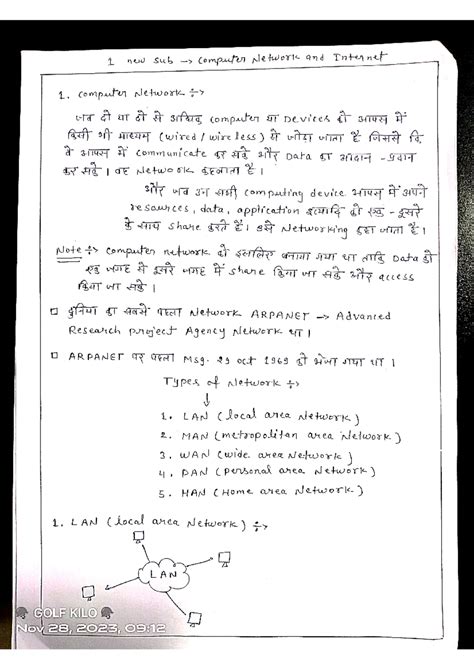 1 new sub → Computer Network and Internet
1. Computer Network ÷>
जब दो या दो से अधिक computer या Devices को आपस में
किसी भी माध्यम (wired / wireless) से जोड़ा जाता है जिससे कि
वे आपस में communicate कर सकें और Data का आदान-प्रदान
कर सकें। वह Network कहलाता है।
और जब उन सभी computing device आपस में अपने
resources, data, application इत्यादि को एक-दूसरे
के साथ share करते हैं। उसे Networking कहा जाता है।
Note ÷> Computer network को इसलिए बनाया गया था ताकि Data को
एक जगह से दूसरे जगह में share किया जा सके और access
किया जा सके।
□ दुनिया का सबसे पहला Network ARPANET → Advanced
Research project Agency Network था।
□ ARPANET पर पहला Msg. 29 oct 1969 को भेजा गया था।
Types of Network ÷>
↓
1. LAN (local area Network)
2. MAN (metropolitan area Network)
3. WAN (wide area Network)
4. PAN (personal area Network)
5. HAN (Home area Network)
1. LAN (local area Network) ÷>
LAN
GOLF KILO
Nov 28, 2023, 09:12